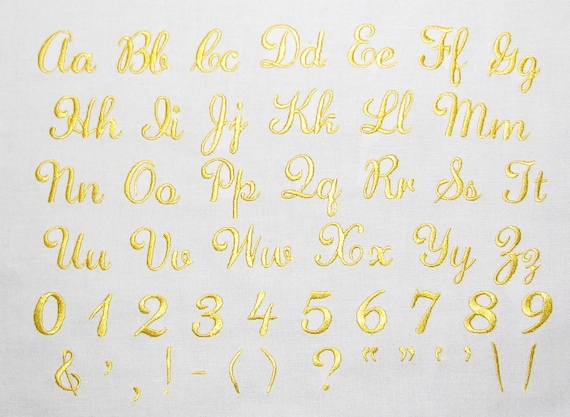 Aa Bb Cc Dd Ee Ff Gg
Hh Ii Jj Kk Ll Mm
Nn Oo Pp Qq Rr Ss Tt
Uu Vv Ww Xx Yy Zz
0 1 2 3 4 5 6 7 8 9
& ’ , ! - ( ) ? “ ” ‘ ’ \ /